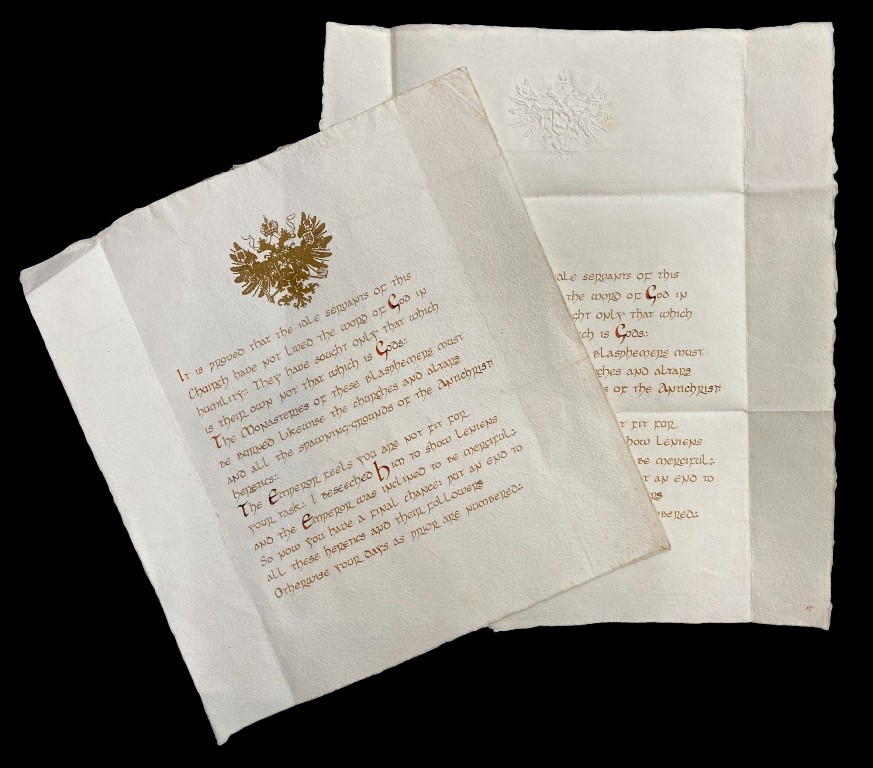 It is proved that the idle servants of this
Church have not lived the word of God in
humility:. They have sought only that which
is their own not that which is Gods:.
The Monasteries of these blasphemers must
be burned likewise the churches and altars
and all the spawning-grounds of the Antichrist:
heretics:.
The Emperor feels you are not fit for
your task:. I beseeched Him to show leniens
and the Emperor was inclined to be merciful:.
So now you have a final chance: put an end to
all these heretics and their followers
Otherwise your days as prior are numbered:.
idle servants of this
the word of God in
ght only that which
ch is Gods:.
blasphemers must
rches and altars
s of the Antichrist:
t fit for
how leniens
be merciful:.
t an end to
rs
bered:.